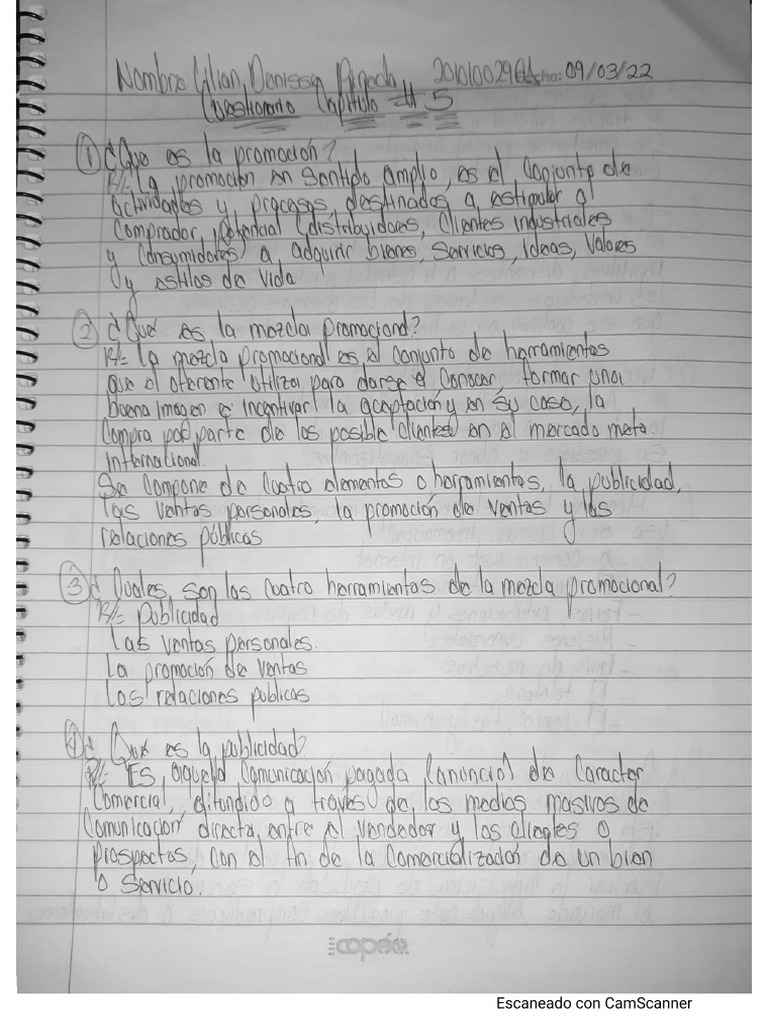 Nombre Lilian Denissa Pineda 20101002961 Fecha: 09/03/22
Cuestionario Capitulo # 5
① ¿Que es la promoción?
R/= La promoción en sentido amplio, es el conjunto de
actividades y procesos destinados a estimular al
comprador potencial (distribuidores, clientes industriales
y consumidores) a adquirir bienes, servicios, ideas, valores
y estilos de vida
② ¿Qué es la mezcla promocional?
R/= La mezcla promocional es el conjunto de herramientas
que el oferente utiliza para darse a conocer, formar una
buena imagen e incentivar la aceptación y en su caso, la
compra por parte de los posible clientes en el mercado meta
internacional.
Se compone de cuatro elementos o herramientas, la publicidad,
las ventas personales, la promoción de ventas y las
relaciones públicas
③ ¿Cuales son las cuatro herramientas de la mezcla promocional?
R/= Publicidad
Las ventas personales.
La promoción de ventas
Las relaciones publicas
④ ¿Qué es la publicidad?
R/= Es aquella comunicación pagada (anuncio) de caracter
comercial, difundido a través de los medios masivos de
comunicación directa entre el vendedor y los clientes o
prospectos, con el fin de la comercialización de un bien
o servicio.
copán
Escaneado con CamScanner